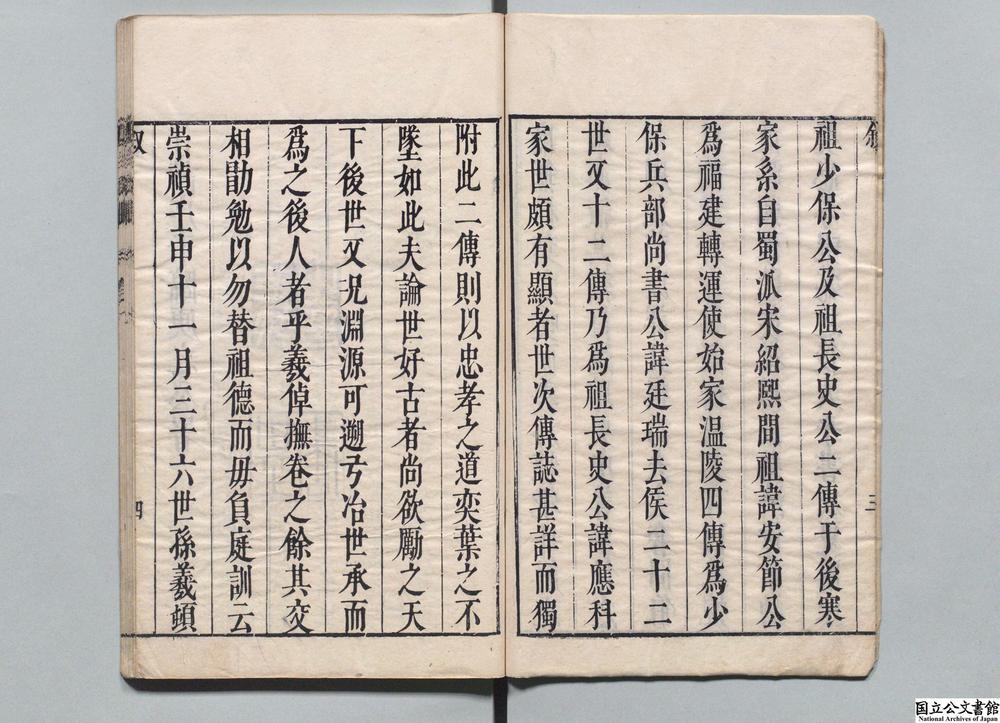 祖少保公及祖長史公二傳于後寒
家系自蜀派宋紹熙間祖諱安節公
爲福建轉運使始家温陵四傳爲少
保兵部尚書公諱廷瑞去侯二十二
世又十二傳乃爲祖長史公諱應科
家世頗有顯者世次傳誌甚詳而獨
三
附此二傳則以忠孝之道奕葉之不
墜如此夫論世好古者尚欲勵之天
下後世又况淵源可遡弓冶世承而
爲之後人者乎羲倬撫卷之餘其交
相勖勉以勿替祖德而毋負庭訓云
崇禎壬申十一月三十六世孫羲頓
四
国立公文書館
National Archives of Japan